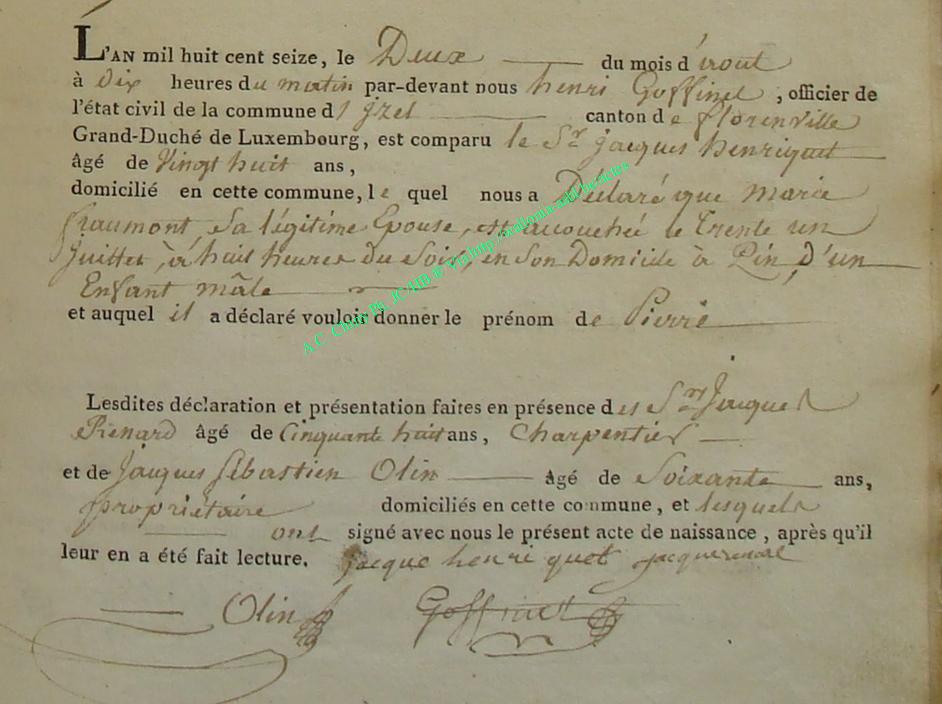 L'AN mil huit cent seize, le Deux du mois d'aout
à Dix heures du matin par-devant nous henri Goffinet, officier de
l'état civil de la commune d'Izel canton de florenville
Grand-Duché de Luxembourg, est comparu le Sr jacques henriquet
âgé de Vingt huit ans,
domicilié en cette commune, le quel nous a Déclaré que marie
fraumont, Sa légitime Epouse, est accouchée le trente un
juillet, à huit heures du Soir, en Son Domicile à Pin, d'un
Enfant mâle
et auquel il a déclaré vouloir donner le prénom de Pierre
Lesdites déclaration et présentation faites en présence des Srs Jacques
Renard âgé de Cinquante huit ans, Charpentier
et de Jacques Sébastien Olin âgé de Soixante ans,
propriétaire domiciliés en cette commune, et lesquels
ont signé avec nous le présent acte de naissance, après qu'il
leur en a été fait lecture. jacque henri quet jacque renard
Olin Goffinet